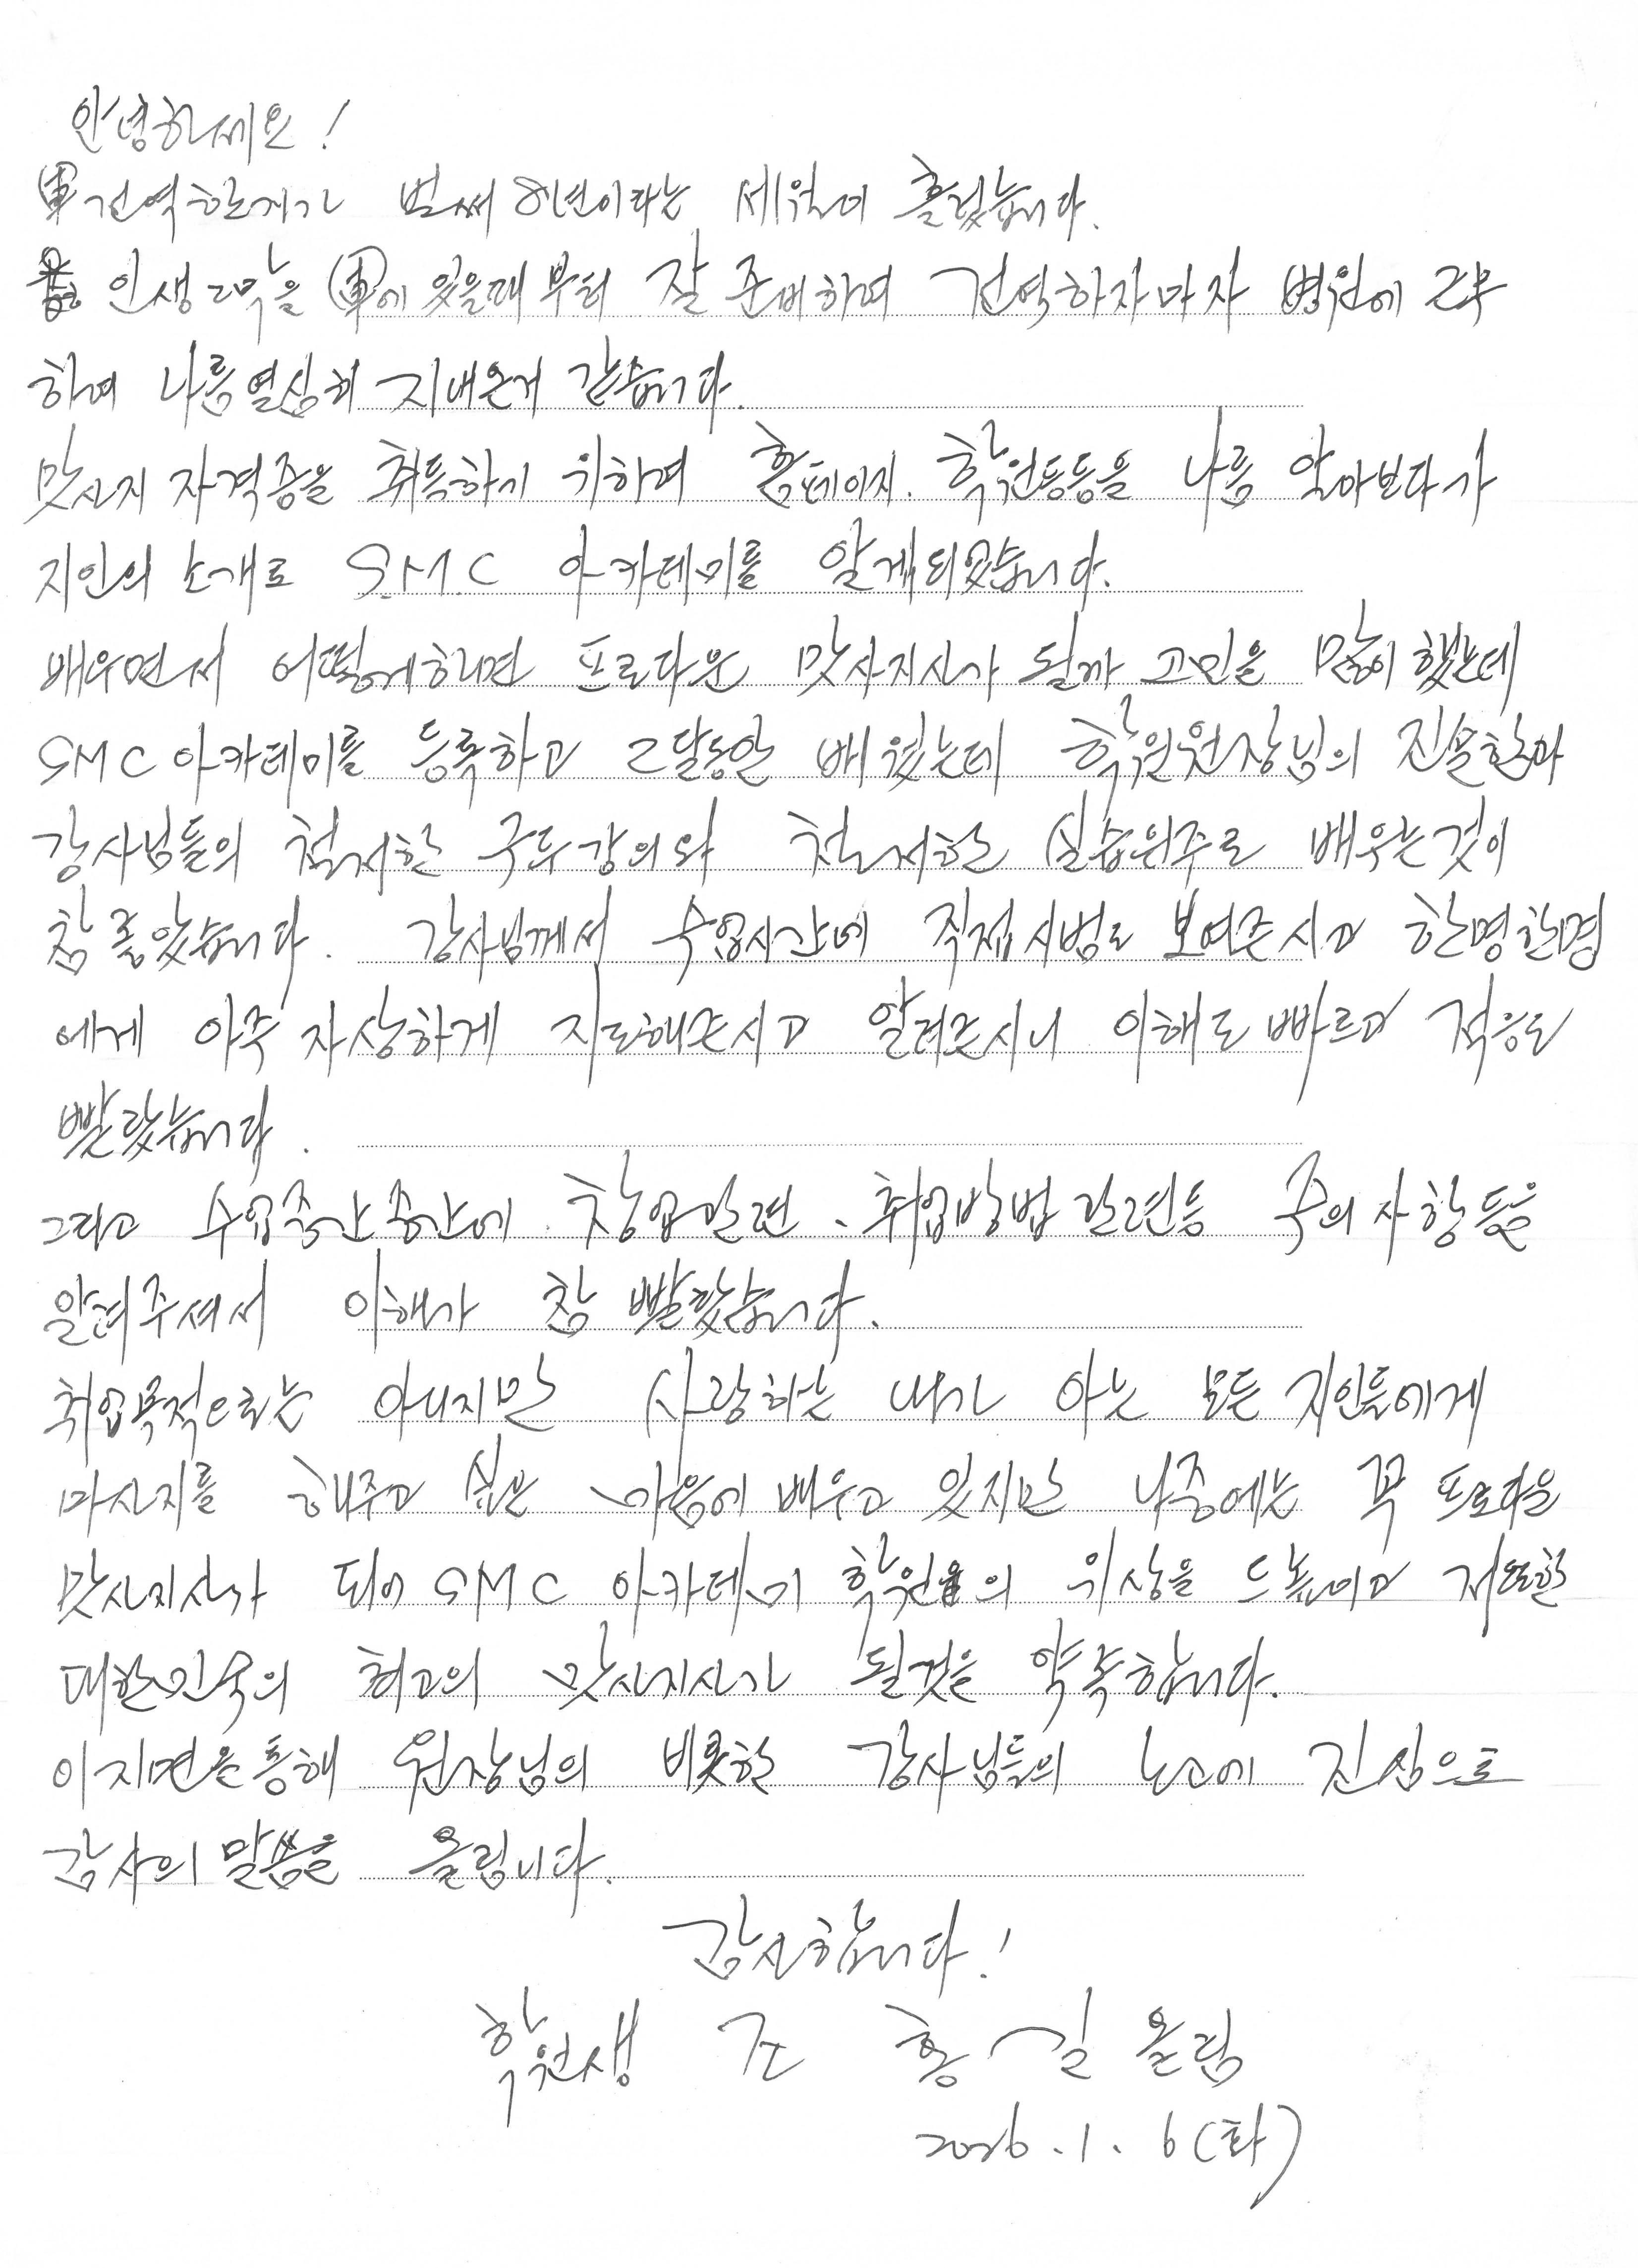 안녕하세요!
軍전역한지가 벌써 8년이라는 세월이 흘렀습니다.
인생 2막을 軍에 있을때부터 잘 준비하여 전역하자마자 병원에 근무
하여 나름열심히 지내온게 같습니다.
맛사지 자격증을 취득하기 위하여 홈페이지. 학원등등을 나름 알아보다가
지인의 소개로 S.M.C 아카데미를 알게되었습니다.
배우면서 어떻게하면 프로다운 맛사지사가 될까 고민을 많이했는데
SMC아카데미를 등록하고 2달동안 배웠는데 학원원장님의 진솔함과
강사님들의 철저한 구두강의와 철저한 실습위주로 배우는것이
참 좋았습니다. 강사님께서 수업시간에 직접시범도 보여주시고 한명한명
에게 아주 자상하게 지도해주시고 알려주시니 이해도빠르고 적응도
빨랐습니다.
그리고 수업중간중간에 창업관련、취업방법관련등 주의사항등을
알려주셔서 이해가 참 빨랐습니다.
취업목적으로는 아니지만 사랑하는 내가 아는 모든 지인들에게
마사지를 해주고 싶은 마음에배우고 있지만 나중에는 꼭 프로다운
맛사지사가 되어 SMC 아카데미 학원의 위상을 드높이고 저또한
대한민국의 최고의 맛사지사가 될것을 약속합니다.
이지면을통해 원장님의 비롯한 강사님들의 노고에 진심으로
감사의말씀을 올립니다.
감사합니다!
학원생 조 홍 길 올림
2026.1.6(화)